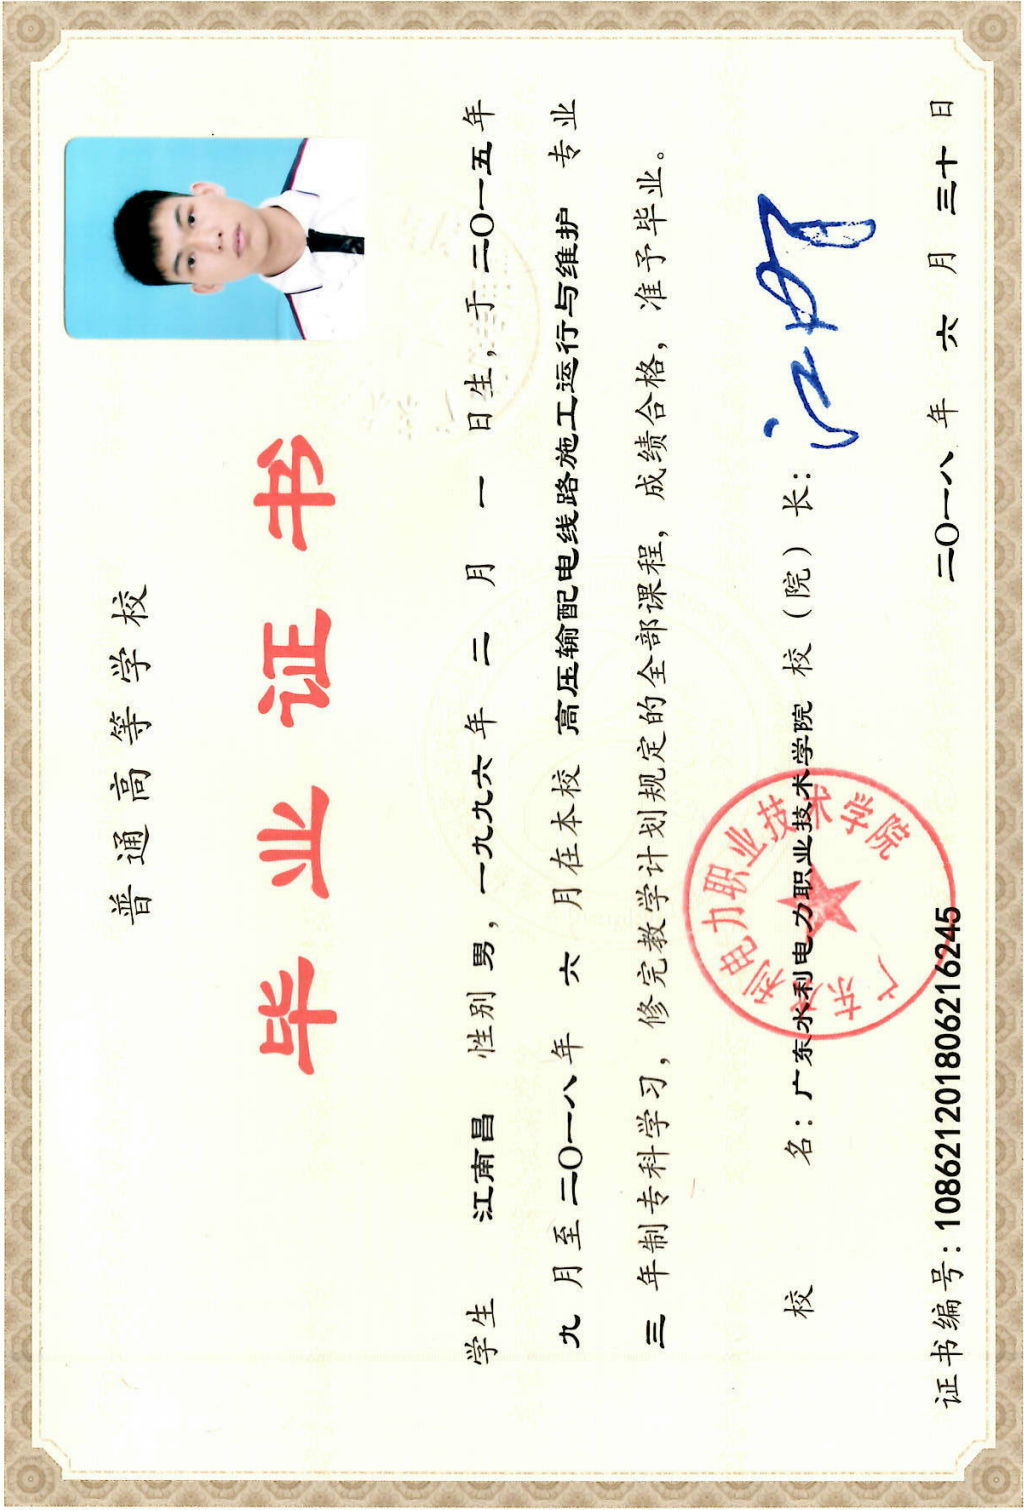 普通高等学校
毕业证书
学生 江南昌 性别 男，一九九六年 二 月 一 日生，于二〇一五年
九 月至二〇一八年 六 月在本校 高压输配电线路施工运行与维护 专业
三 年制专科学习，修完教学计划规定的全部课程，成绩合格，准予毕业。
校 名：广东水利电力职业技术学院 校（院）长：
广东水利电力职业技术学院
证书编号：108621201806216245 二〇一八年 六 月 三十 日